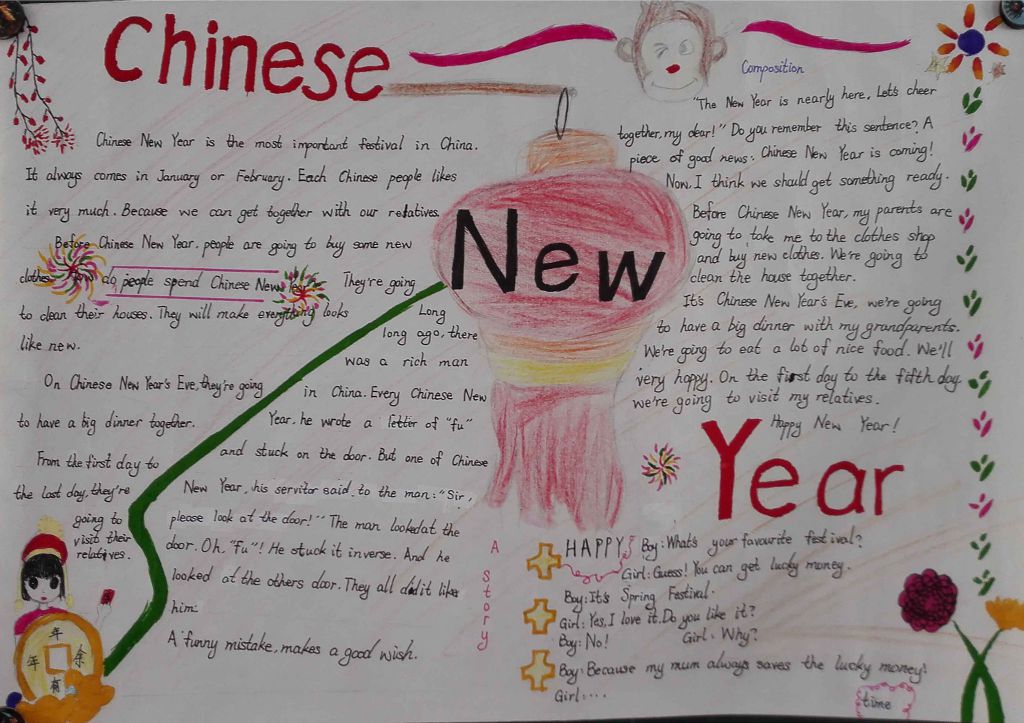 Chinese
New
Year
Chinese New Year is the most important festival in China.
It always comes in January or February. Each Chinese people likes
it very much. Because we can get together with our relatives.
Before Chinese New Year, people are going to buy some new
clothes.
do people spend Chinese New Year
They're going
to clean their houses. They will make everything looks
like new.
On Chinese New Year's Eve, they're going
to have a big dinner together.
From the first day to
the last day, they're
going to
visit their
relatives.
Long
long ago, there
was a rich man
in China. Every Chinese New
Year, he wrote a letter of "fu"
and stuck on the door. But one of Chinese
New Year, his servitor said to the man: "Sir,
please look at the door!" The man lookedat the
door. Oh, "fu"! He stuck it inverse. And he
looked at the others door. They all did it like
him.
A funny mistake, makes a good wish.
A story
Composition
"The New Year is nearly here, Let's cheer
together, my dear!" Do you remember this sentence? A
piece of good news: Chinese New Year is coming!
Now, I think we should get something ready.
Before Chinese New Year, my parents are
going to take me to the clothes shop
and buy new clothes. We're going to
clean the house together.
It's Chinese New Year's Eve, we're going
to have a big dinner with my grandparents.
We're going to eat a lot of nice food. We'll
very happy. On the first day to the fifth day,
we're going to visit my relatives.
Happy New Year!
HAPPY
Boy: What's your favourite festival?
Girl: Guess! You can get lucky money.
Boy: It's Spring Festival.
Girl: Yes, I love it. Do you like it?
Boy: No! Girl: Why?
Boy: Because my mum always saves the lucky money.
Girl: ...
time
年
年 余
有